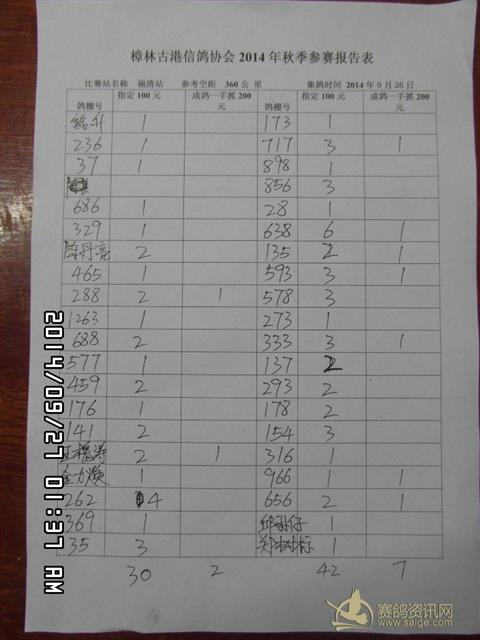 樟林古港信鸽协会 2014 年秋季参赛报告表
比赛站名称 福清站 参考空距 360 公里 集鸽时间 2014 年 9 月 26 日
鸽棚号 指定 100 元 成鸽一手抓 200 元 鸽棚号 指定 100 元 成鸽一手抓 200 元
1 173 1
236 1 717 3 1
37 1 898 1
856 3
686 1 28 1
329 1 638 6 1
陈丹亮 2 135 2 1
465 1 593 3 1
288 2 1 578 3
1263 1 273 1
688 2 333 3 1
577 1 137 2
459 2 293 2
176 1 178 2
141 2 154 3
2 1 316 1
1 966 1 1
262 4 656 2 1
369 1 1
35 3 1
30 2 42 7
2014/09/27 10:37 AM
赛鸽资讯网
www.saige.com